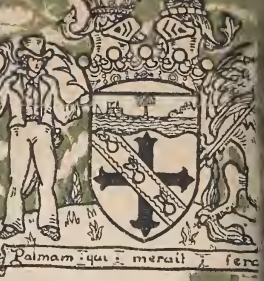 Palmam qui meruit fer